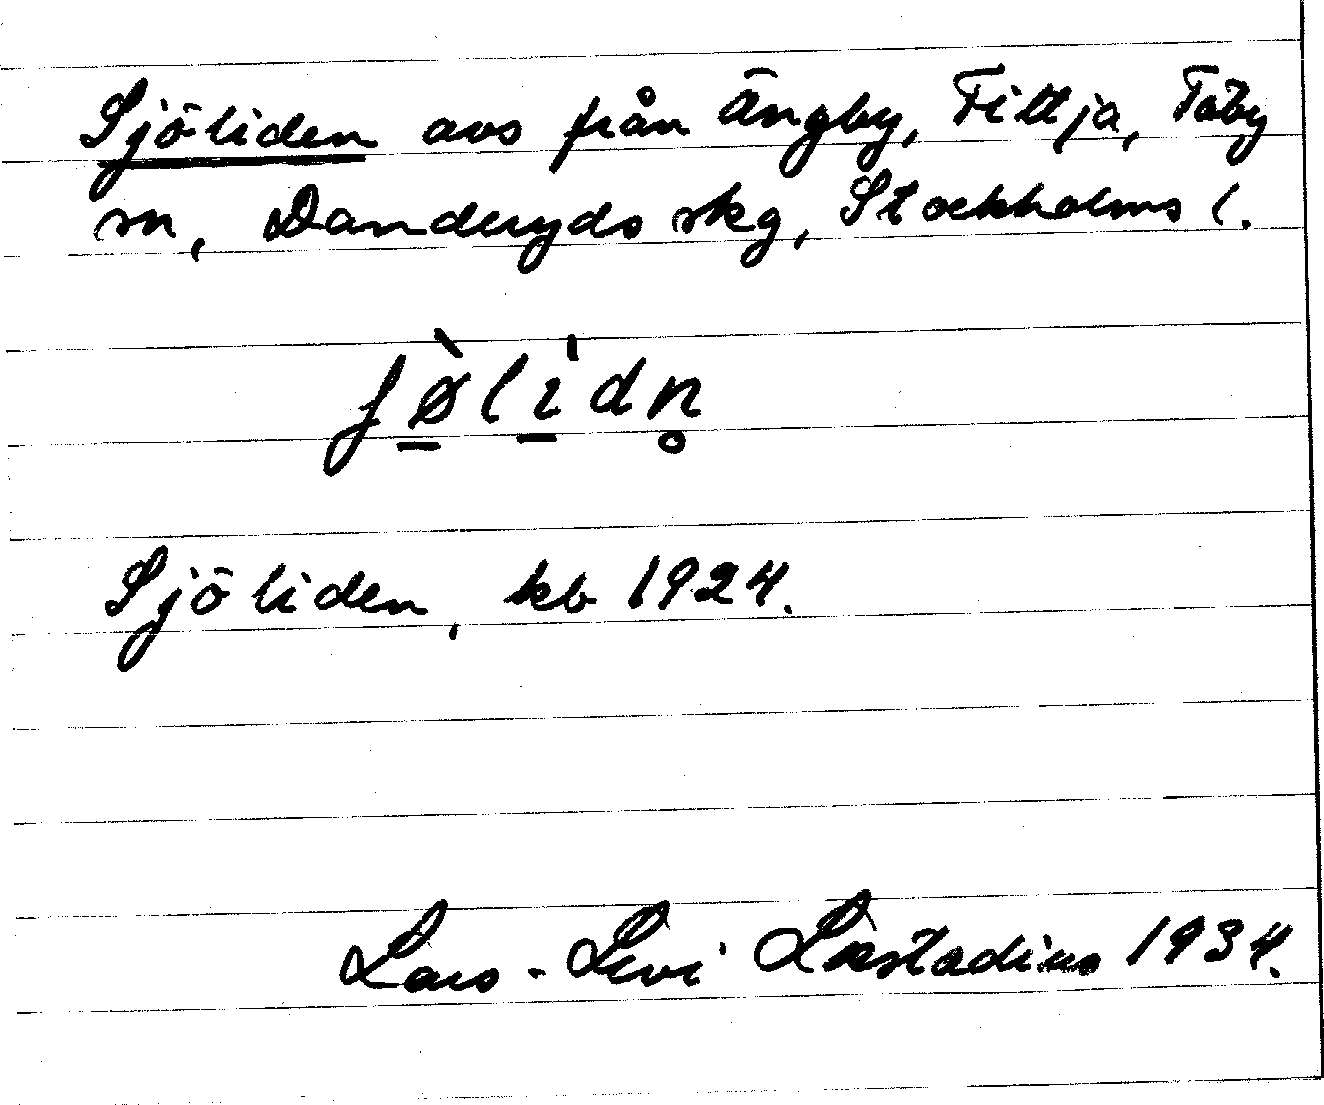 Sjöliden avs från Ängby, Fittja, Täby
sn, Danderyds skg, Stockholms l.
ʃø̠̀li̠̍dn̥
Sjöliden, kb 1924.
Lars-Levi Læstadius 1934.